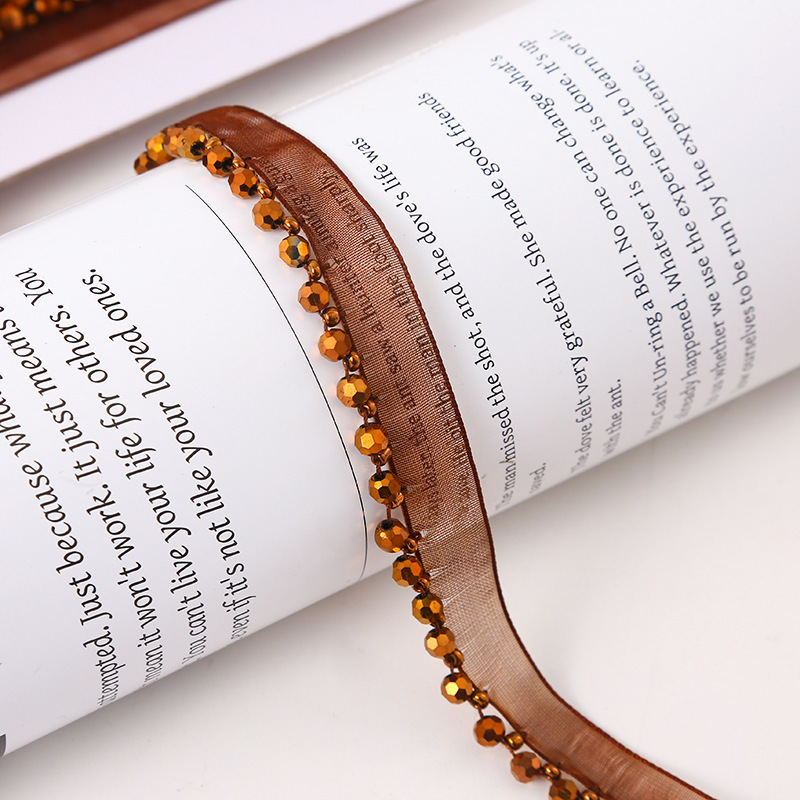 attempted. Just because what
mean it won't work. It just means
You can't live your life for others. You
even if it's not like your loved ones.
later, the ant saw a hunter
the man in the foot sharply.
The man missed the shot, and the dove's life was
saved.
The dove felt very grateful. She made good friends
with the ant.
You Can't Un-ring a Bell. No one can change what's
already happened. Whatever is done is done. It's up
to us whether we use the experience to learn or al-
low ourselves to be run by the experience.